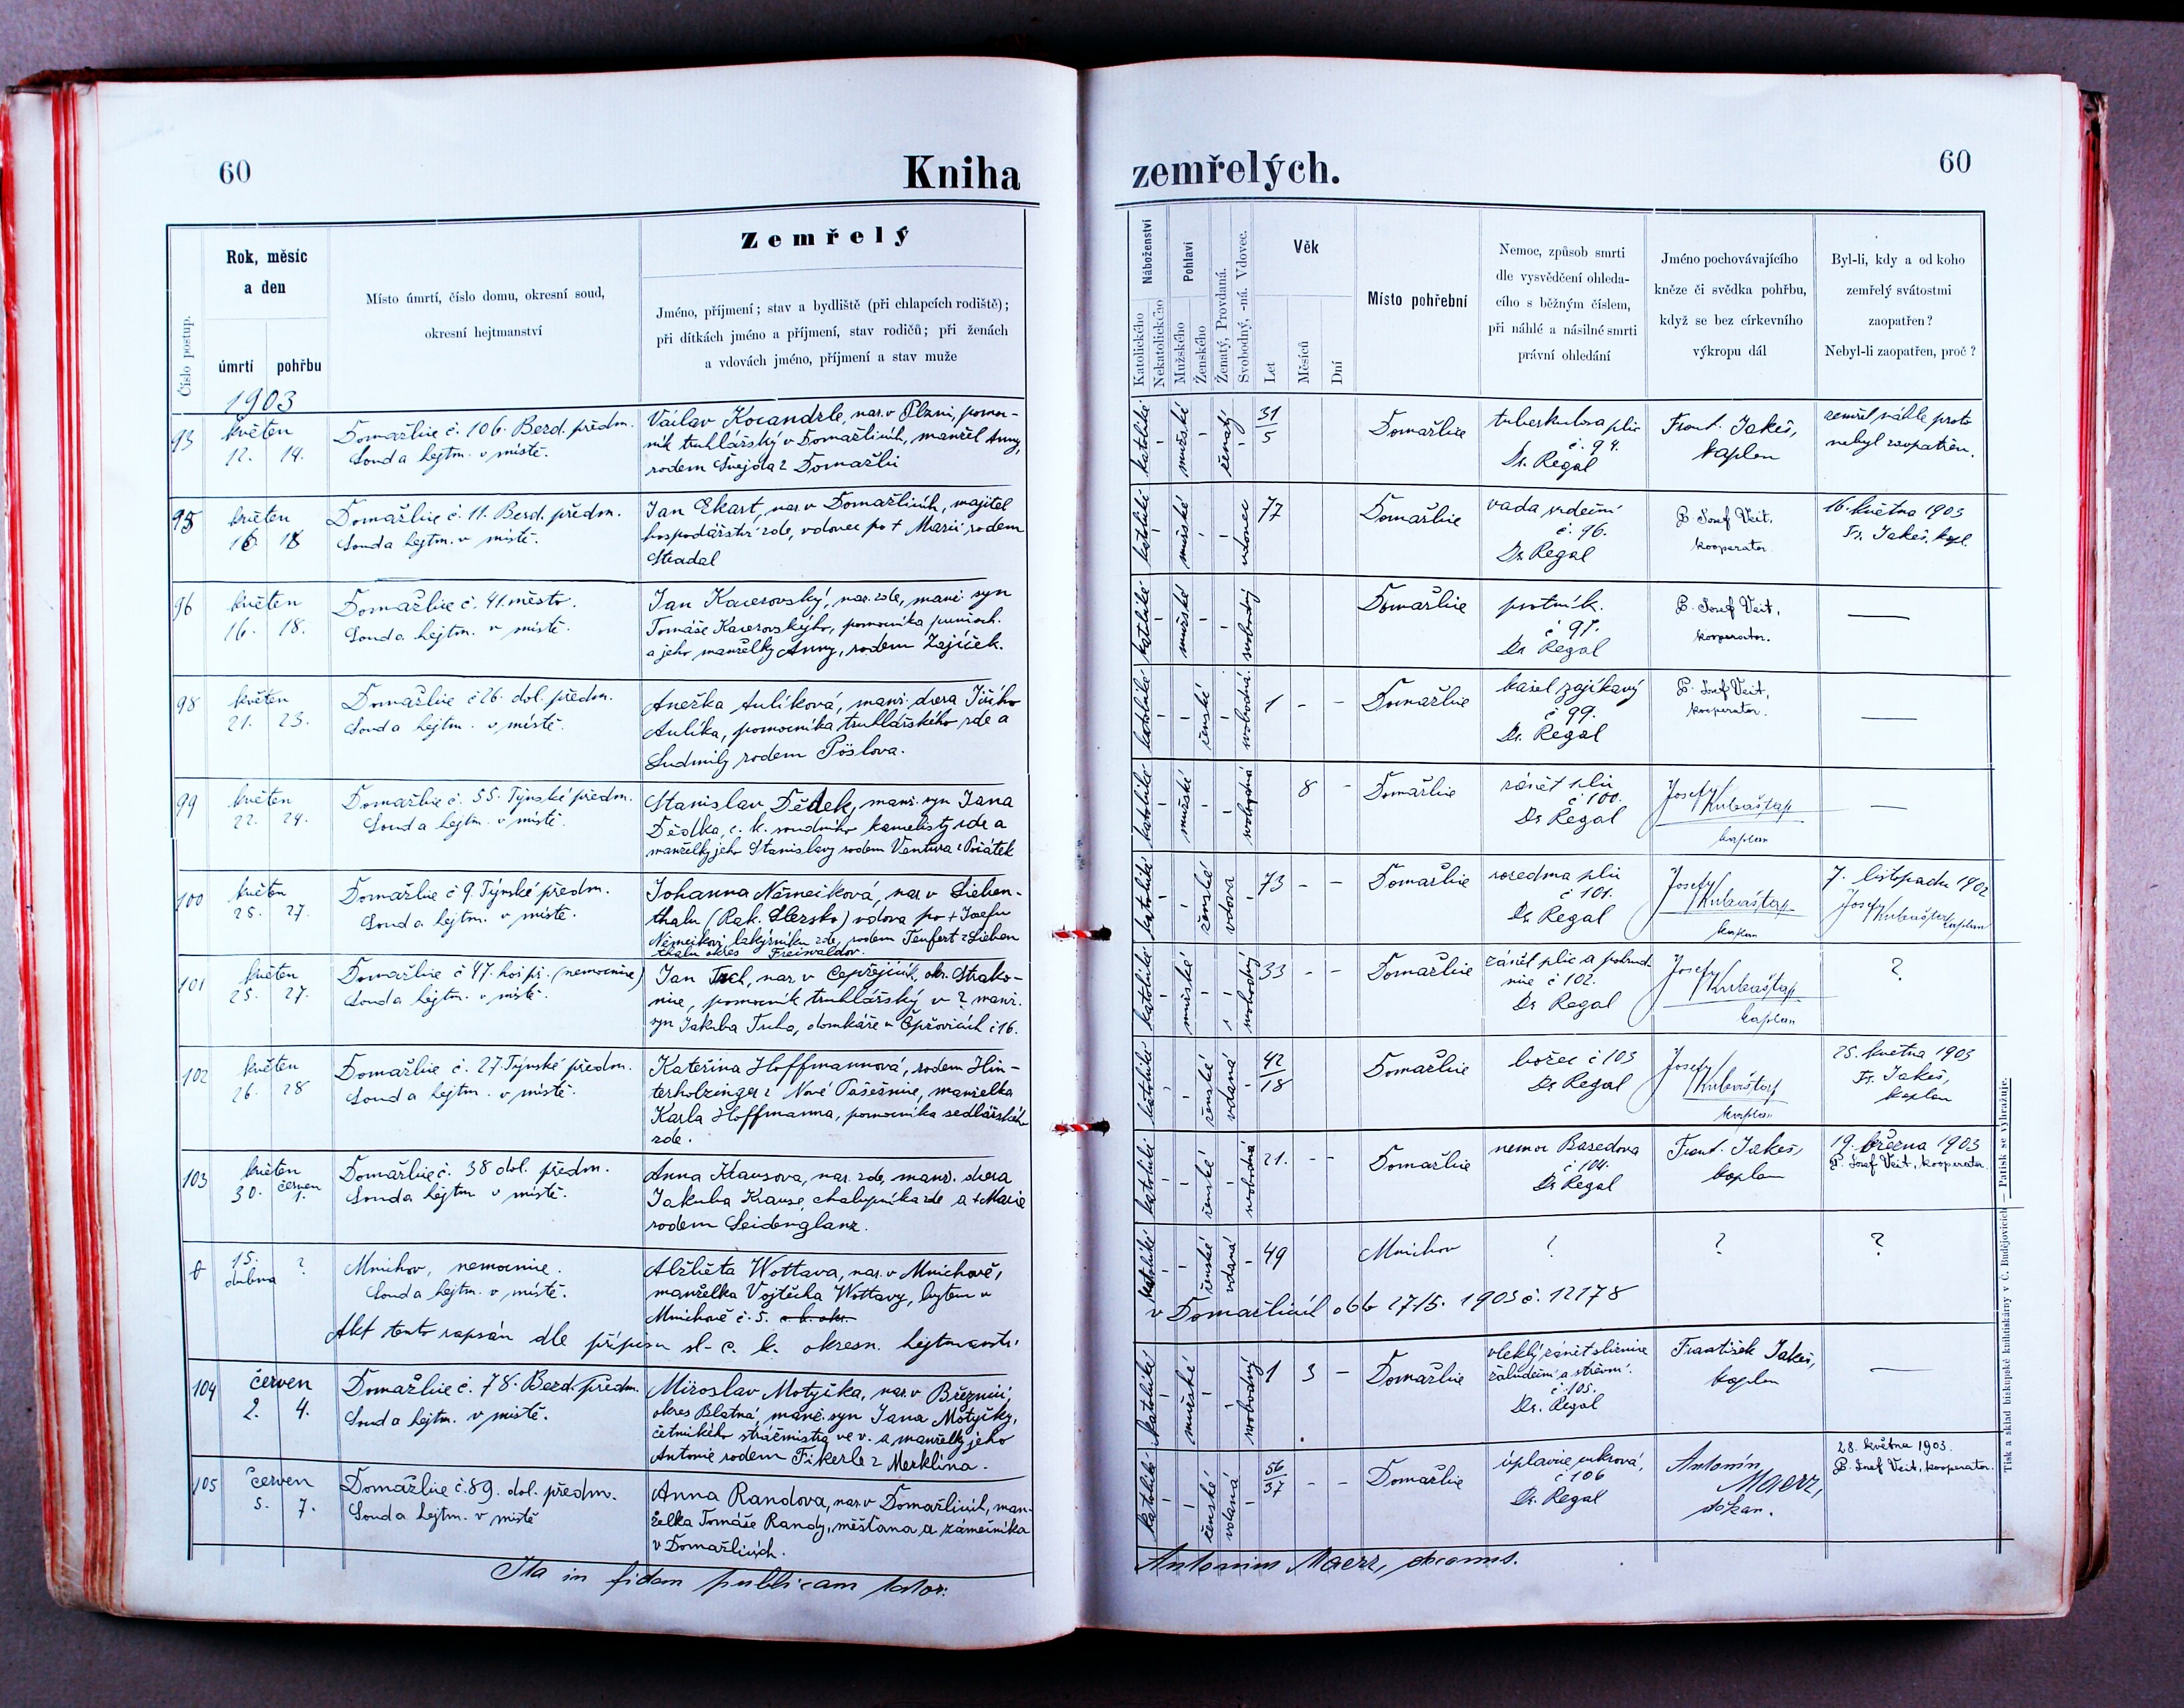 60
Kniha
zemřelých.
60
Číslo postup.
Rok, měsíc
a den
úmrtí
pohřbu
Místo úmrtí, číslo domu, okresní soud,
okresní hejtmanství
Zemřelý
Jméno, příjmení; stav a bydliště (při chlapcích rodiště);
při dítkách jméno a příjmení, stav rodičů; při ženách
a vdovách jméno, příjmení a stav muže
Náboženství
Katolického
Nekatolického
Pohlaví
Mužského
Ženského
Ženatý, Provdaná.
Svobodný, -ná. Vdovec.
Věk
Let
Měsíců
Dní
Místo pohřební
Nemoc, způsob smrti
dle vysvědčení ohleda-
cího s běžným číslem,
při náhlé a násilné smrti
právní ohledání
Jméno pochovávajícího
kněze či svědka pohřbu,
když se bez církevního
výkropu dál
Byl-li, kdy a od koho
zemřelý svátostmi
zaopatřen?
Nebyl-li zaopatřen, proč?
1903
93
květen
12. 14.
Domažlice č. 106. Bezd. předm.
Soud a hejtm. v místě.
Václav Kocandrle, nar. v Plzni, pomoc-
ník truhlářský v Domažlicích, manžel Anny,
rodem Švejda z Domažlic
katolické
mužské
ženatý
31
5
Domažlice
tuberkulosa plic
č. 94.
Dr. Regal
Frant. Jakeš,
kaplan
zemřel náhle proto
nebyl zaopatřen.
95
květen
16. 18
Domažlice č. 11. Bezd. předm.
Soud a hejtm. v místě.
Jan Ekart, nar. v Domažlicích, majitel
hospodářství zde, vdovec po + Marii rodem
Steadal
katolické
mužské
vdovec
77
Domažlice
vada srdeční
č. 96.
Dr. Regal
P. Josef Veit,
kooperator.
16. května 1903
Fr. Jakeš, kapl.
96
květen
16. 18.
Domažlice č. 41. město.
Soud a hejtm. v místě.
Jan Kacerovský, nar. zde, manž. syn
Tomáše Kacerovského, pomocníka
a jeho manželky Anny, rodem Zajíček.
katolické
mužské
svobodný
Domažlice
psotník.
č. 97.
Dr. Regal
P. Josef Veit,
kooperator.
98
květen
21. 23.
Domažlice č 26. dol. předm.
Soud a hejtm. v místě.
Anežka Aulíková, manž. dcera Jiřího
Aulíka, pomocníka truhlářského zde a
Ludmily rodem Pöslova.
katolické
ženské
svobodná
1 - -
Domažlice
kašel zajíkavý
č 99.
Dr. Regal
P. Josef Veit,
kooperator.
99
květen
22. 24.
Domažlice č. 55. Týnské předm.
Soud a hejtm. v místě.
Stanislav Dědek, manž. syn Jana
Dědka, c. k. soudního kancelisty zde a
manželky jeho Stanislavy rodem Ventura z Počátek
katolické
mužské
8 -
Domažlice
zánět plic
č 100.
Dr Regal
Josef Kubaštap
kaplan
100
květen
25. 27.
Domažlice č 9. Týnské předm.
Soud a hejtm. v místě.
Johanna Němeíková, nar. v Lieben-
thalu (Rak. Slezsko) vdova po + Josefu
Němeíkovi, lakýrníku zde, rodem Teufert z Lieben
thalu okres Freiwaldov.
katolické
ženské
vdova
73 - -
Domažlice
rozedma plic
č 101.
Dr. Regal
Josef Kubaštap
kaplan
7. listopadu 1902
Josef Kubaštap kaplan
101
květen
25. 27.
Domažlice č 47. hoř. př. (nemocnice)
Soud a hejtm. v místě.
Jan Tuch, nar. v Čepřejicích, okr. Strako-
nice, pomocník truhlářský v ? manž.
syn Jakuba Tucha, domkáře v Čepřovicích č 16.
katolické
mužské
svobodný
33 - -
Domažlice
zánět plic a pohrud-
nice č 102.
Dr Regal
Josef Kubaštap
kaplan
?
102
květen
26. 28
Domažlice č. 27. Týnské předm.
Soud a hejtm. v místě.
Kateřina Hoffmannová, rodem Hin-
terholzinger z Nové Pasečnice, manželka
Karla Hoffmanna, pomocníka sedlářského
zde.
katolické
ženské
vdaná
42
18
Domažlice
božec č 103
Dr Regal
Josef Kubaštap
kaplan
25. května 1903
Fr. Jakeš,
kaplan
103
květen
30. červen
1.
Domažlice č. 38 dol. předm.
Soud a hejtm. v místě.
Anna Krausova, nar. zde, manž. dcera
Jakuba Krause, chalupníka zde a + Marie
rodem Seidenglanz.
katolické
ženské
svobodná
21. - -
Domažlice
nemoc Basedova
č 104.
Dr Regal
Frant. Jakeš,
kaplan
19. března 1903
P. Josef Veit, kooperator.
15.
dubna
?
Mnichov, nemocnice.
Soud a hejtm. v místě.
Alžběta Wottava, nar. v Mnichově,
manželka Vojtěcha Wottavy, bytem v
Mnichově č. 5.
katolické
ženské
vdaná
49
Mnichov
?
?
?
Akt tento zapsán dle přípisu sl. c. k. okresn. hejtmanství
v Domažlicích ddto 27/5. 1903 č. 12178
104
červen
2. 4.
Domažlice č. 78. Bezd. předm.
Soud a hejtm. v místě.
Miroslav Motyčka, nar. v Březnici,
okres Blatná, manž. syn Jana Motyčky,
četnického strážmistra ve v. a manželky jeho
Antonie rodem Fikerle z Merklína.
katolické
mužské
svobodný
1 3 -
Domažlice
vleklý zánět sliznice
žaludeční a střevní.
č. 105.
Dr. Regal
František Jakeš,
kaplan
105
červen
5. 7.
Domažlice č. 89. dol. předm.
Soud a hejtm. v místě
Anna Randova, nar. v Domažlicích, man-
želka Tomáše Randy, měšťana a zámečníka
v Domažlicích.
katolické
ženské
vdaná
56
37
- -
Domažlice
úplavice cukrová,
č 106
Dr. Regal
Antonín
Maerz,
děkan.
28. května 1903.
P. Josef Veit, kooperator.
Ita in fidem publicam testor:
Antonius Maerz, decanus.
Tisk a sklad biskupské knihtiskárny v Č. Budějovicích — Patisk se vyhražuje.